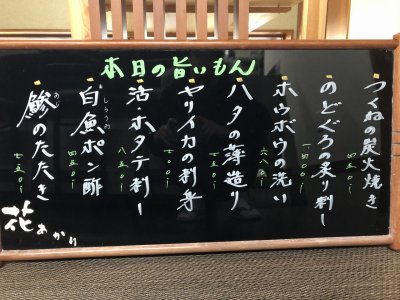 本日の旨いもん
つくねの炭火焼き
四五〇ー
のどぐろの炙り刺し
一四〇〇ー
ホウボウの洗い
六八〇ー
ハタの薄造り
七五〇ー
ヤリイカの刺身
七〇〇ー
活・ホタテ刺し
八五〇ー
白魚ポン酢
しらうお
四五〇ー
鯵のたたき
あじ
七五〇ー
花あかり